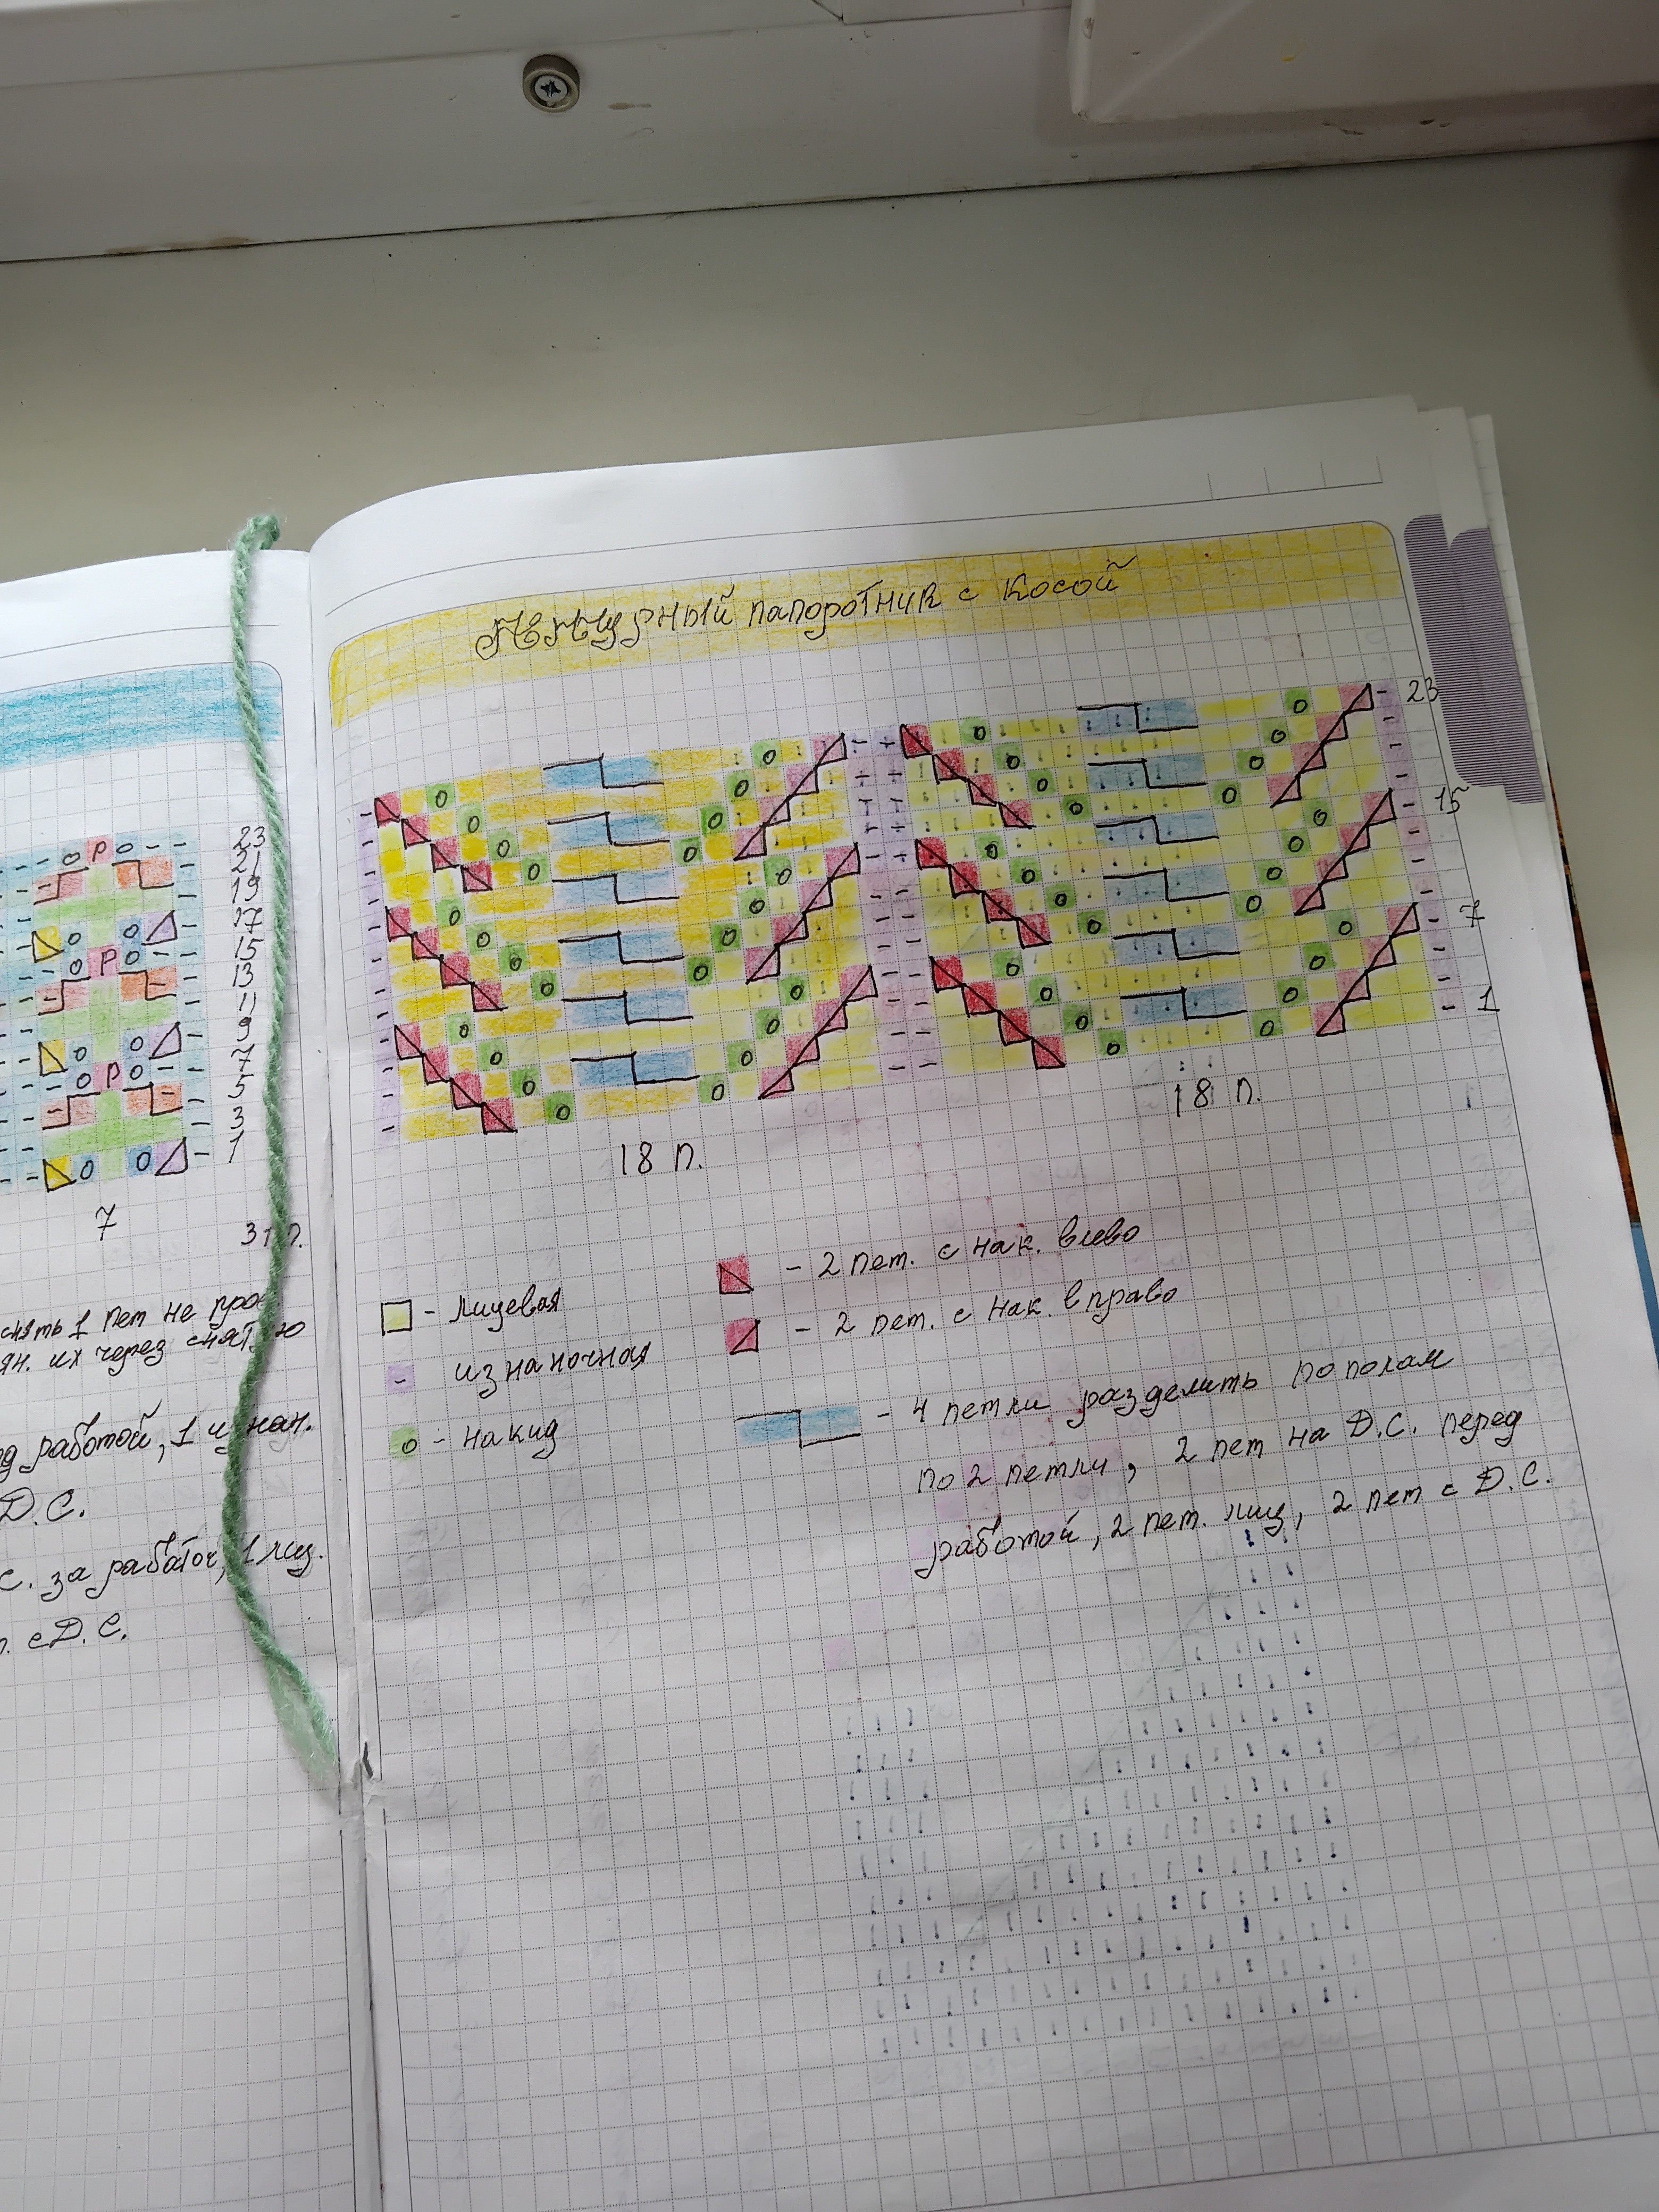 Ажурный папоротник с косой
23
15
7
1
18 п.
18 п.
- лицевая
- изнаночная
о - накид
- 2 пет. с нак. влево
- 2 пет. с нак. вправо
- 4 петли разделить пополам
по 2 петли, 2 пет на Д.С. перед
работой, 2 пет. лиц, 2 пет с Д.С.
23
21
19
17
15
13
11
9
7
5
3
1
7
снять 1 пет не
их через
работой, 1 изнан.
Д.С.
С. за работ, 1 лиц.
с Д.С.